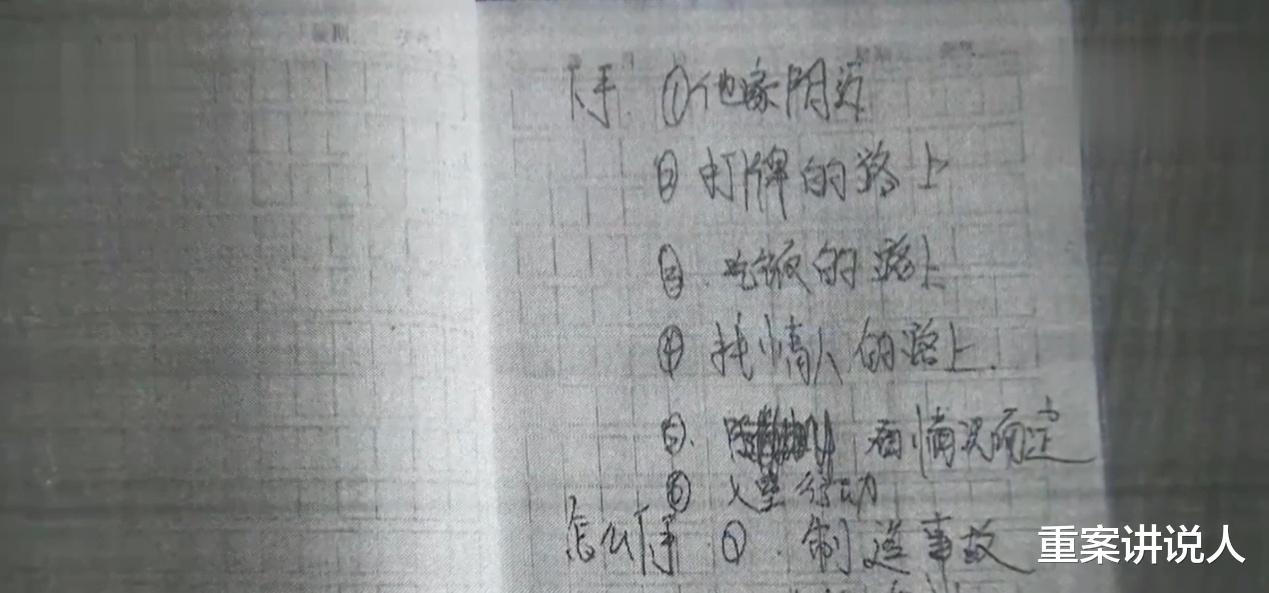 下手 ①他家附近
② 打牌的路上
③ 吃饭的路上
④ 找情人的路上.
⑤. 看情况而定
⑥ 入室行动
怎么下手 ①. 制造事故
重案讲说人